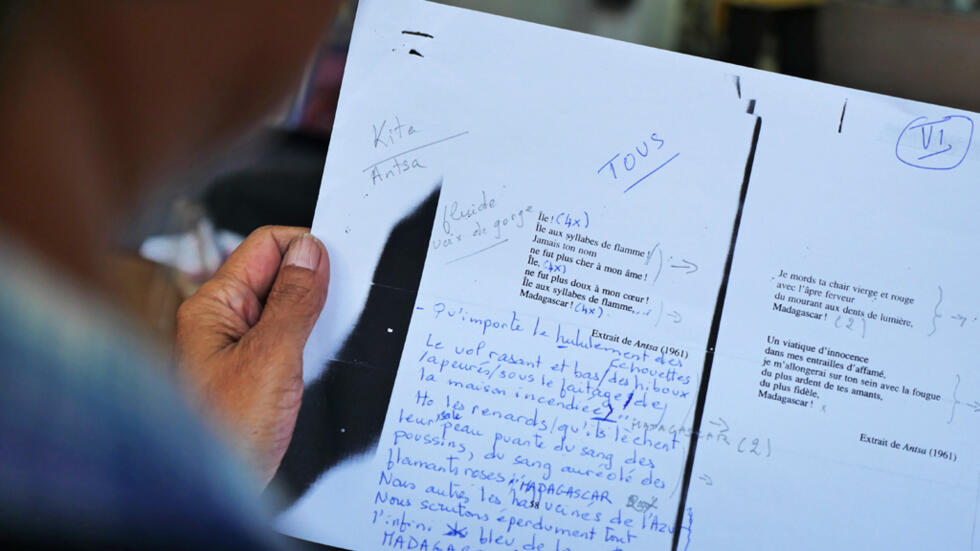 Kita
Antsa
TOUS
fluide
voix de gorge
Île ! (4x)
Île aux syllabes de flamme !
Jamais ton nom
ne fut plus cher à mon âme !
Île, (4x)
ne fut plus doux à mon cœur !
Île aux syllabes de flamme,
Madagascar ! (4x)
Extrait de Antsa (1961)
- Qu'importe le hululement des
chouettes
Le vol rasant et bas/des hiboux
/apeurés/sous le faîtage/de
la maison incendiée
MADAGASCAR (2)
Ho les renards/qu'ils lèchent
leur sale peau puante du sang des
poussins, du sang auréolé des
flamants roses MADAGASCAR
38
Nous autres les hallucinés de l'Azur
Nous scrutons éperdument tout
l'infini bleu de la
VI
Je mords ta chair vierge et rouge
avec l'âpre ferveur
du mourant aux dents de lumière,
Madagascar ! (2)
Un viatique d'innocence
dans mes entrailles d'affamé,
je m'allongerai sur ton sein avec la fougue
du plus ardent de tes amants,
du plus fidèle,
Madagascar !
Extrait de Antsa (1961)